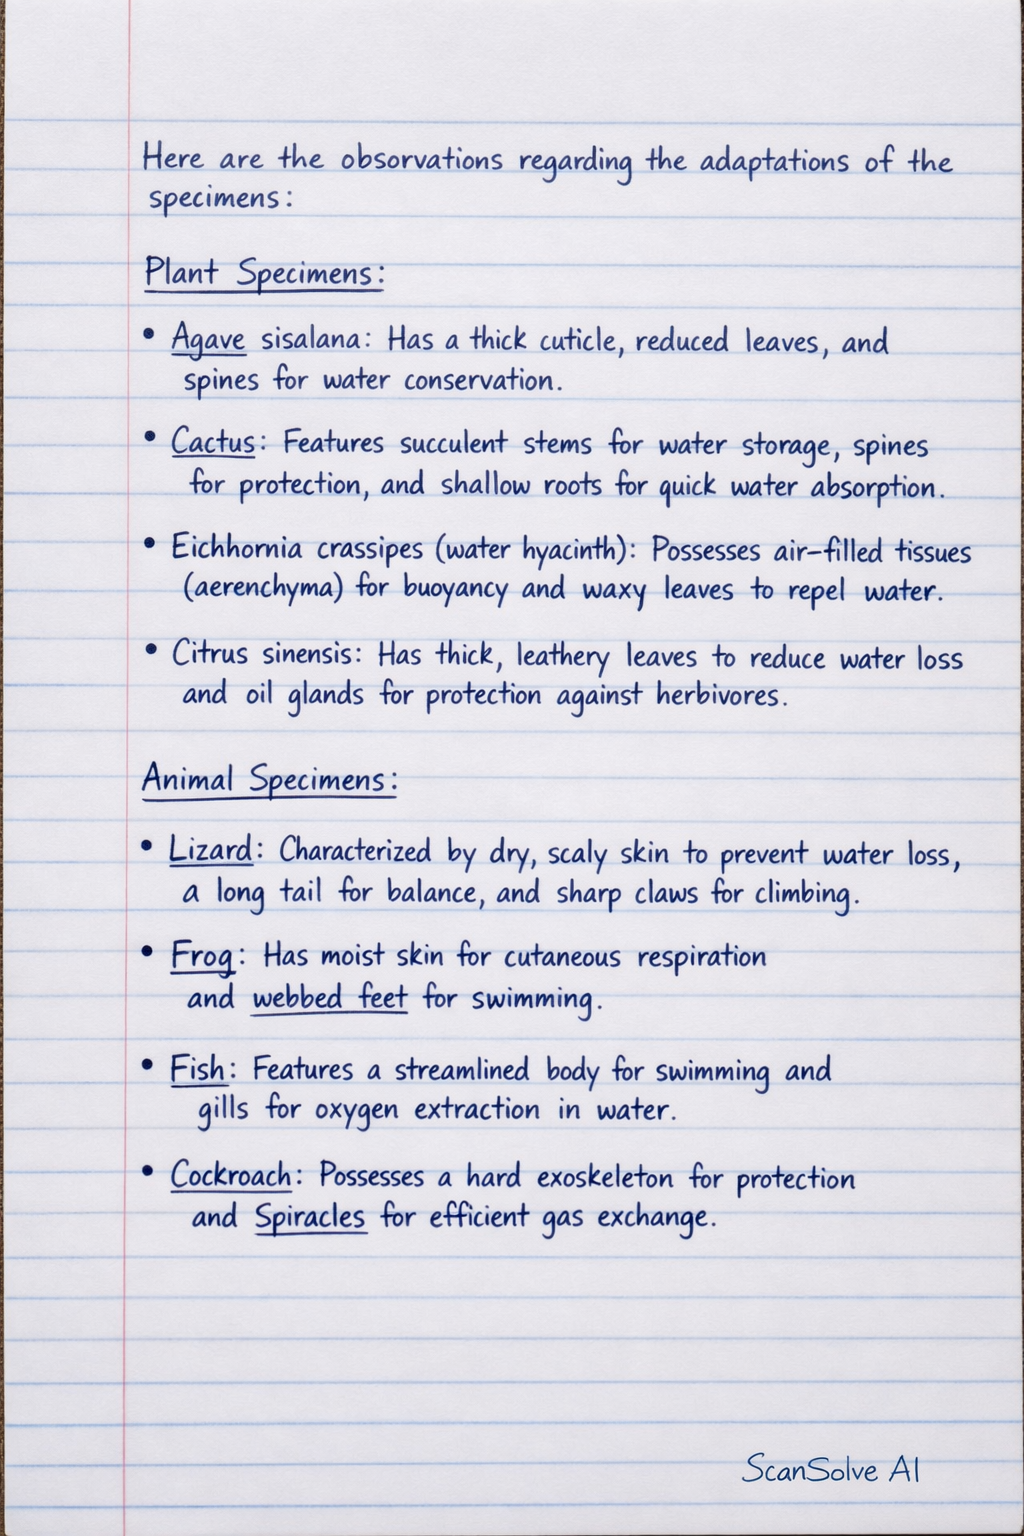 Here are the obsorvations regarding the adaptations of the
specimens:
Plant Specimens:
• Agave sisalana: Has a thick cuticle, reduced leaves, and
spines for water conservation.
• Cactus: Features succulent stems for water storage, spines
for protection, and shallow roots for quick water absorption.
• Eichhornia crassipes (water hyacinth): Possesses air-filled tissues
(aerenchyma) for buoyancy and waxy leaves to repel water.
• Citrus sinensis: Has thick, leathery leaves to reduce water loss
and oil glands for protection against herbivores.
Animal Specimens:
• Lizard: Characterized by dry, scaly skin to prevent water loss,
a long tail for balance, and sharp claws for climbing.
• Frog: Has moist skin for cutaneous respiration
and webbed feet for swimming.
• Fish: Features a streamlined body for swimming and
gills for oxygen extraction in water.
• Cockroach: Possesses a hard exoskeleton for protection
and Spiracles for efficient gas exchange.
ScanSolve AI